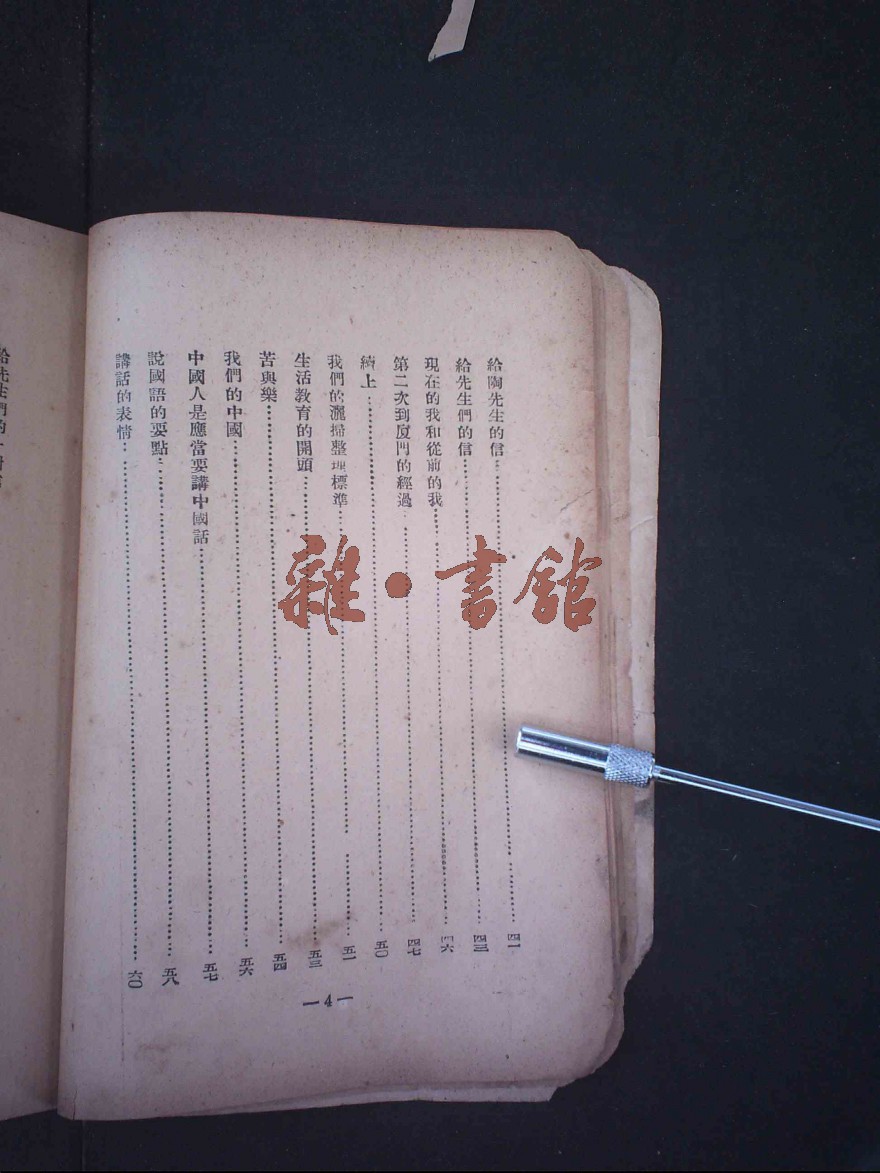 給陶先生的信 四一
給先生們的信 四三
現在的我和從前的我 四六
第二次到厦門的經過 四七
續上 五〇
我們的灑掃整理標準 五一
生活教育的開頭 五三
苦與樂 五四
我們的中國 五六
中國人是應當要講中國話 五七
說國語的要點 五八
講話的表情 六〇
—4—
雜·書館